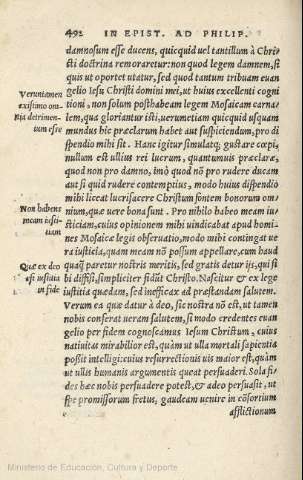 492 IN EPIST. AD PHILIP.
damnosum esse ducens, quicquid uel tantillum à Chri-
sti doctrina remoraretur: non quod legem damnem, si
quis ut oportet utatur, sed quod tantum tribuam euan
gelio Iesu Christi domini mei, ut huius excellenti cogni
tioni, non solum posthabeam legem Mosaicam carna-
lem, qua gloriantur isti, uerumetiam quicquid usquam
mundus hic præclarum habet aut suspiciendum, pro di
spendio mihi sit. Hanc igitur simulatq; gustare cœpi,
nullum est ullius rei lucrum, quantumuis præclaræ,
quod non pro damno, imò quod nō pro rudere ducam
aut si quid rudere contemptius, modo huius dispendio
mihi liceat lucrifacere Christum fontem bonorum om
nium, quæ uere bona sunt. Pro nihilo habeo meam iu-
sticiam, cuius opinionem mihi uindicabat apud homi-
nes Mosaicæ legis obseruatio, modo mihi contingat ue
ra iusticia, quam meam nō possum appellare, cum haud
quaq̃ paretur nostris meritis, sed gratis detur ijs, qui si
bi diffisi, simpliciter fidūt Christo. Nascitur & ex lege
iustitia quædam, sed inefficax ad præstandam salutem.
Verum ea quæ datur à deo, sic nostra nō est, ut tamen
nobis conferat ueram salutem, si modo credentes euan
gelio per fidem cognoscamus Iesum Christum, cuius
natiuitas mirabilior est, quàm ut ulla mortali sapientia
possit intelligi: cuius resurrectionis uis maior est, quàm
ut ullis humanis argumentis queat persuaderi. Sola fi-
des hæc nobis persuadere potest, & adeo persuasit, ut
spe promissorum fretus, gaudeam uenire in cōsortium
afflictionum
Veruntamen
existimo om-
nia detrimen-
tum esse
Non habens
meam iusti-
tiam
Quæ ex deo
est iustitia
in fide
Ministerio de Educación, Cultura y Deporte